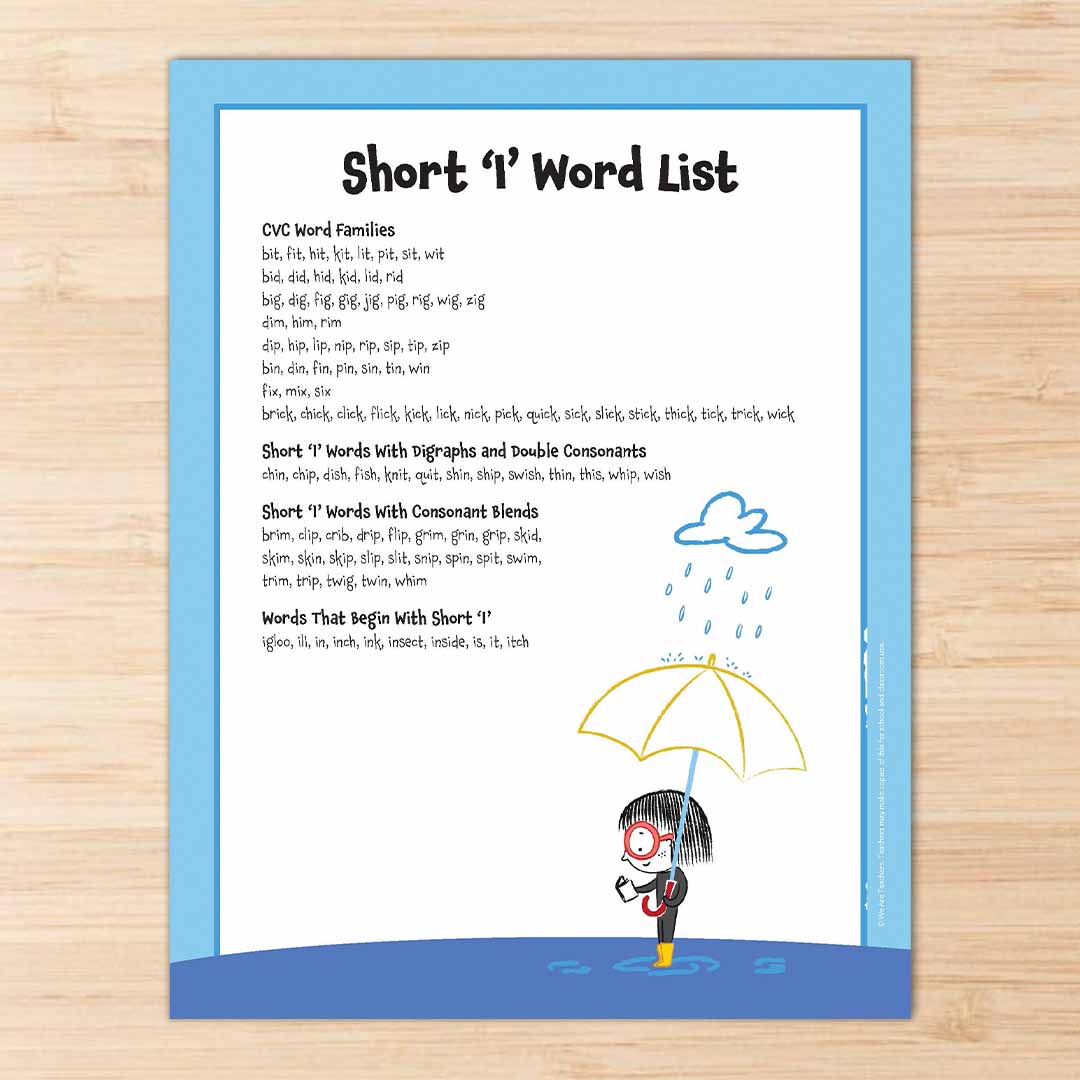 Short ‘I’ Word List
CVC Word Families
bit, fit, hit, kit, lit, pit, sit, wit
bid, did, hid, kid, lid, rid
big, dig, fig, gig, jig, pig, rig, wig, zig
dim, him, rim
dip, hip, lip, nip, rip, sip, tip, zip
bin, din, fin, pin, sin, tin, win
fix, mix, six
brick, chick, click, flick, kick, lick, nick, pick, quick, sick, slick, stick, thick, tick, trick, wick
Short ‘I’ Words With Digraphs and Double Consonants
chin, chip, dish, fish, knit, quit, shin, ship, swish, thin, this, whip, wish
Short ‘I’ Words With Consonant Blends
brim, clip, crib, drip, flip, grim, grin, grip, skid,
skim, skin, skip, slip, slit, snip, spin, spit, swim,
trim, trip, twig, twin, whim
Words That Begin With Short ‘I’
igloo, ill, in, inch, ink, insect, inside, is, it, itch
© We Are Teachers. Teachers may make copies of this for school and classroom use.